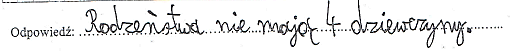 Odpowiedź: Rodzeństwa nie mają 4 dziewczyny.